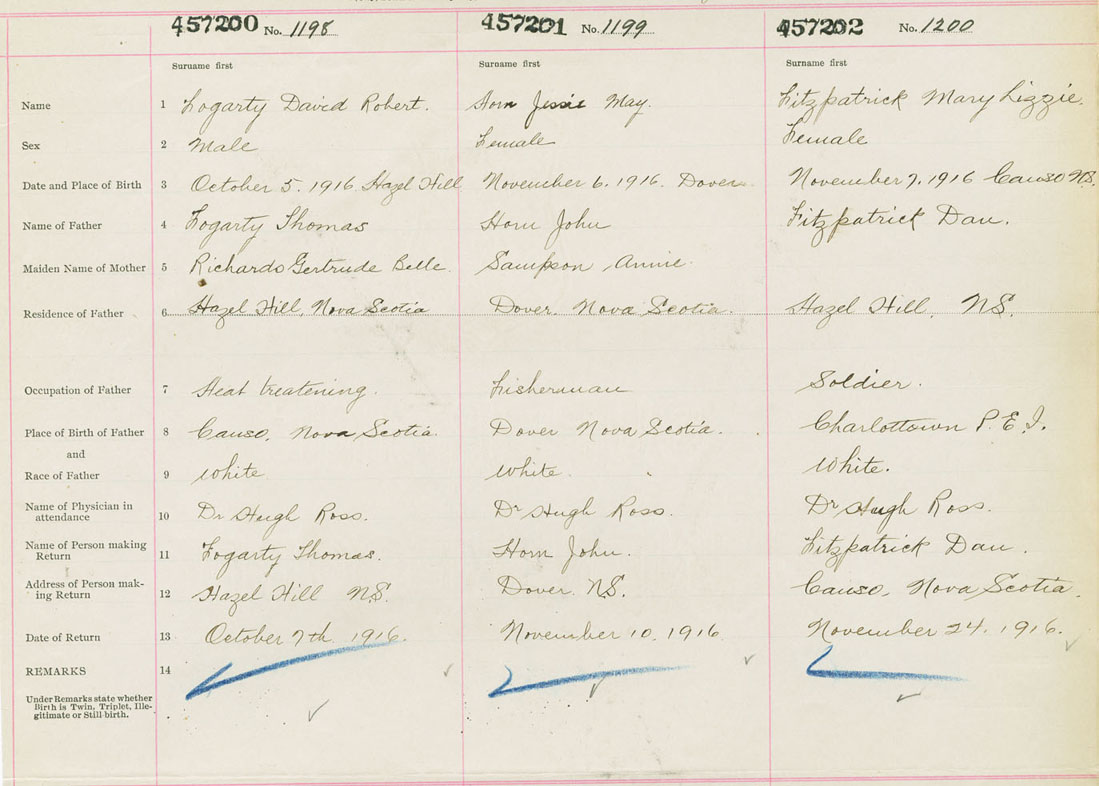 457200 No. 1198 457201 No. 1199 457202 No. 1200
Surname first Surname first Surname first
Name 1 Fogarty David Robert. Horn Jessie May. Fitzpatrick Mary Lizzie.
Sex 2 Male Female Female
Date and Place of Birth 3 October 5. 1916 Hazel Hill November 6. 1916. Dover November 7. 1916 Canso N.S.
Name of Father 4 Fogarty Thomas Horn John Fitzpatrick Dan.
Maiden Name of Mother 5 Richards Gertrude Belle. Sampson Annie
Residence of Father 6 Hazel Hill, Nova Scotia Dover. Nova Scotia. Hazel Hill. NS.
Occupation of Father 7 Heat treatening. Fisherman Soldier.
Place of Birth of Father 8 Canso, Nova Scotia Dover Nova Scotia. Charlottown P.E.I.
and
Race of Father 9 White White. White.
Name of Physician in
attendance 10 Dr Hugh Ross. Dr Hugh Ross. Dr Hugh Ross.
Name of Person making
Return 11 Fogarty Thomas. Horn John. Fitzpatrick Dan.
Address of Person mak-
ing Return 12 Hazel Hill N.S. Dover N.S. Canso, Nova Scotia.
Date of Return 13 October 7th 1916. November 10. 1916 November 24. 1916.
REMARKS 14
Under Remarks state whether
Birth is Twin, Triplet, Ille-
gitimate or Still-birth.